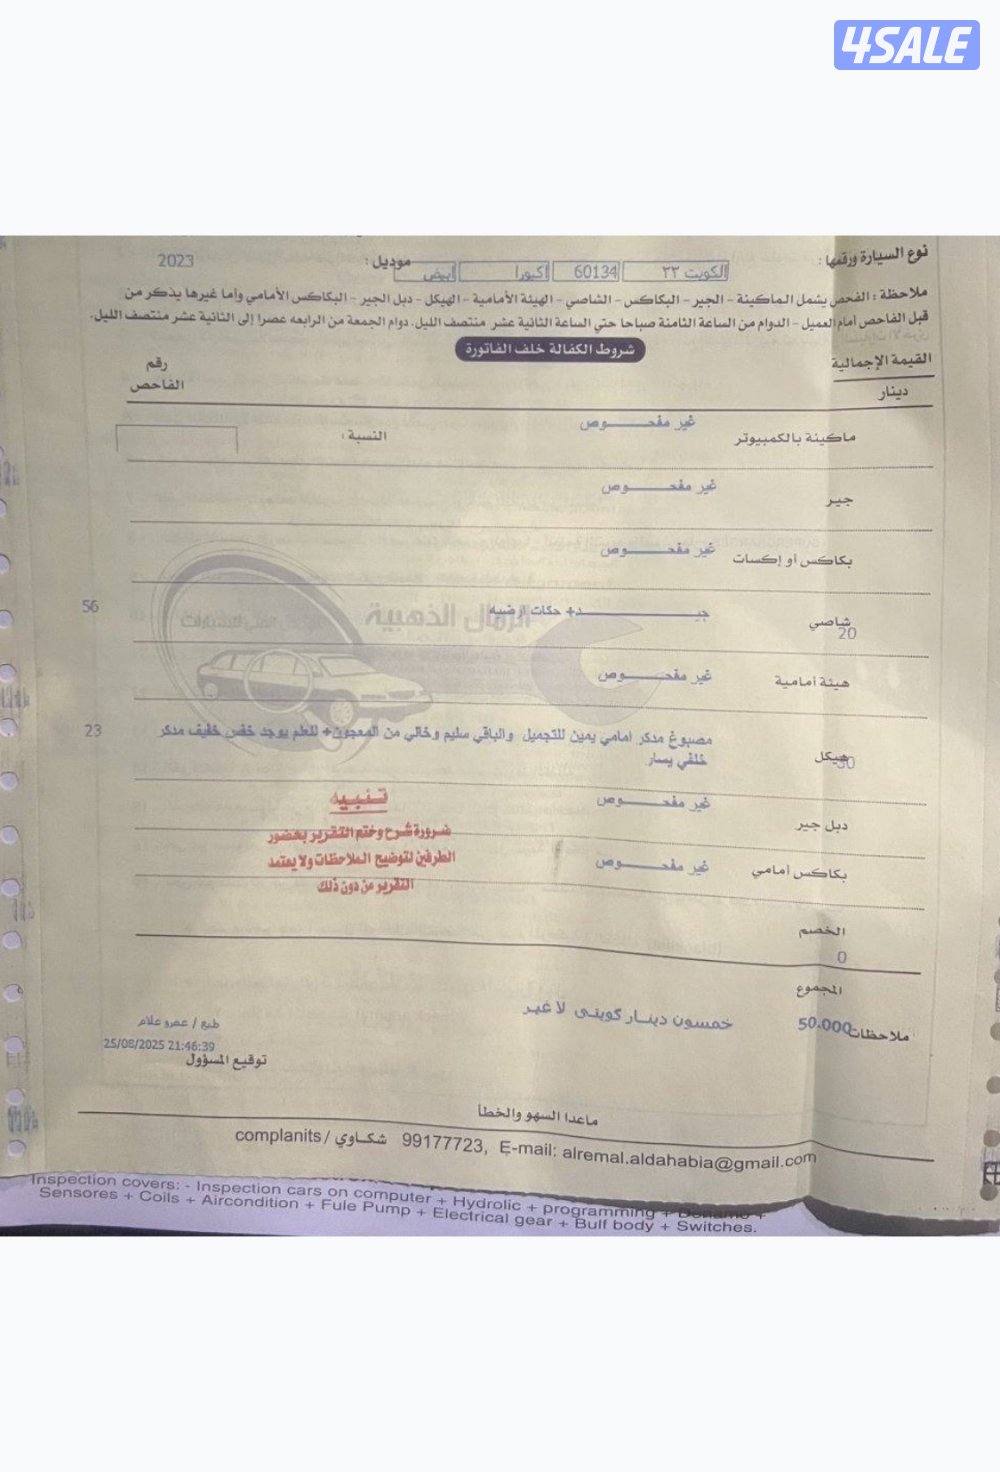 4SALE
نوع السيارة ورقمها : الكويت ٣٣ 60134 اكيورا أبيض موديل : 2023
ملاحظة : الفحص يشمل الماكينة - الجير - البكاكس - الشاصي - الهيئة الأمامية - الهيكل - دبل الجير - البكاكس الأمامي وأما غيرها يذكر من
قبل الفاحص أمام العميل - الدوام من الساعة الثامنة صباحا حتي الساعة الثانية عشر منتصف الليل. دوام الجمعة من الرابعه عصرا إلى الثانية عشر منتصف الليل.
شروط الكفالة خلف الفاتورة
القيمة الإجمالية
دينار
رقم
الفاحص
ماكينة بالكمبيوتر غير مفحـــــــوص النسبة :
جير غير مفحـــــــوص
بكاكس أو إكسات غير مفحـــــــوص
شاصي 20 جيـــــــــــــد+ حكات ارضيه 56
الرمال الذهبية
هيئة أمامية غير مفحـــــــوص
هيكل 30 مصبوغ مدكر امامي يمين للتجميل والباقي سليم وخالي من المعجون+ للعلم يوجد خفس خفيف مدكر 23
خلفي يسار
دبل جير غير مفحـــــــوص
بكاكس أمامي غير مفحـــــــوص
تنبيه
ضرورة شرح وختم التقرير بحضور
الطرفين لتوضيح الملاحظات ولا يعتمد
التقرير من دون ذلك
الخصم
0
المجموع
50.000 خمسون دينـار كويتى لا غير
ملاحظات
طبع / عمرو علام
25/08/2025 21:46:39
توقيع المسؤول
ماعدا السهو والخطأ
complanits / شكاوي 99177723, E-mail: alremal.aldahabia@gmail.com
Inspection covers: - Inspection cars on computer + Hydrolic + programming + Denamo +
Sensores + Coils + Aircondition + Fule Pump + Electrical gear + Bulf body + Switches.